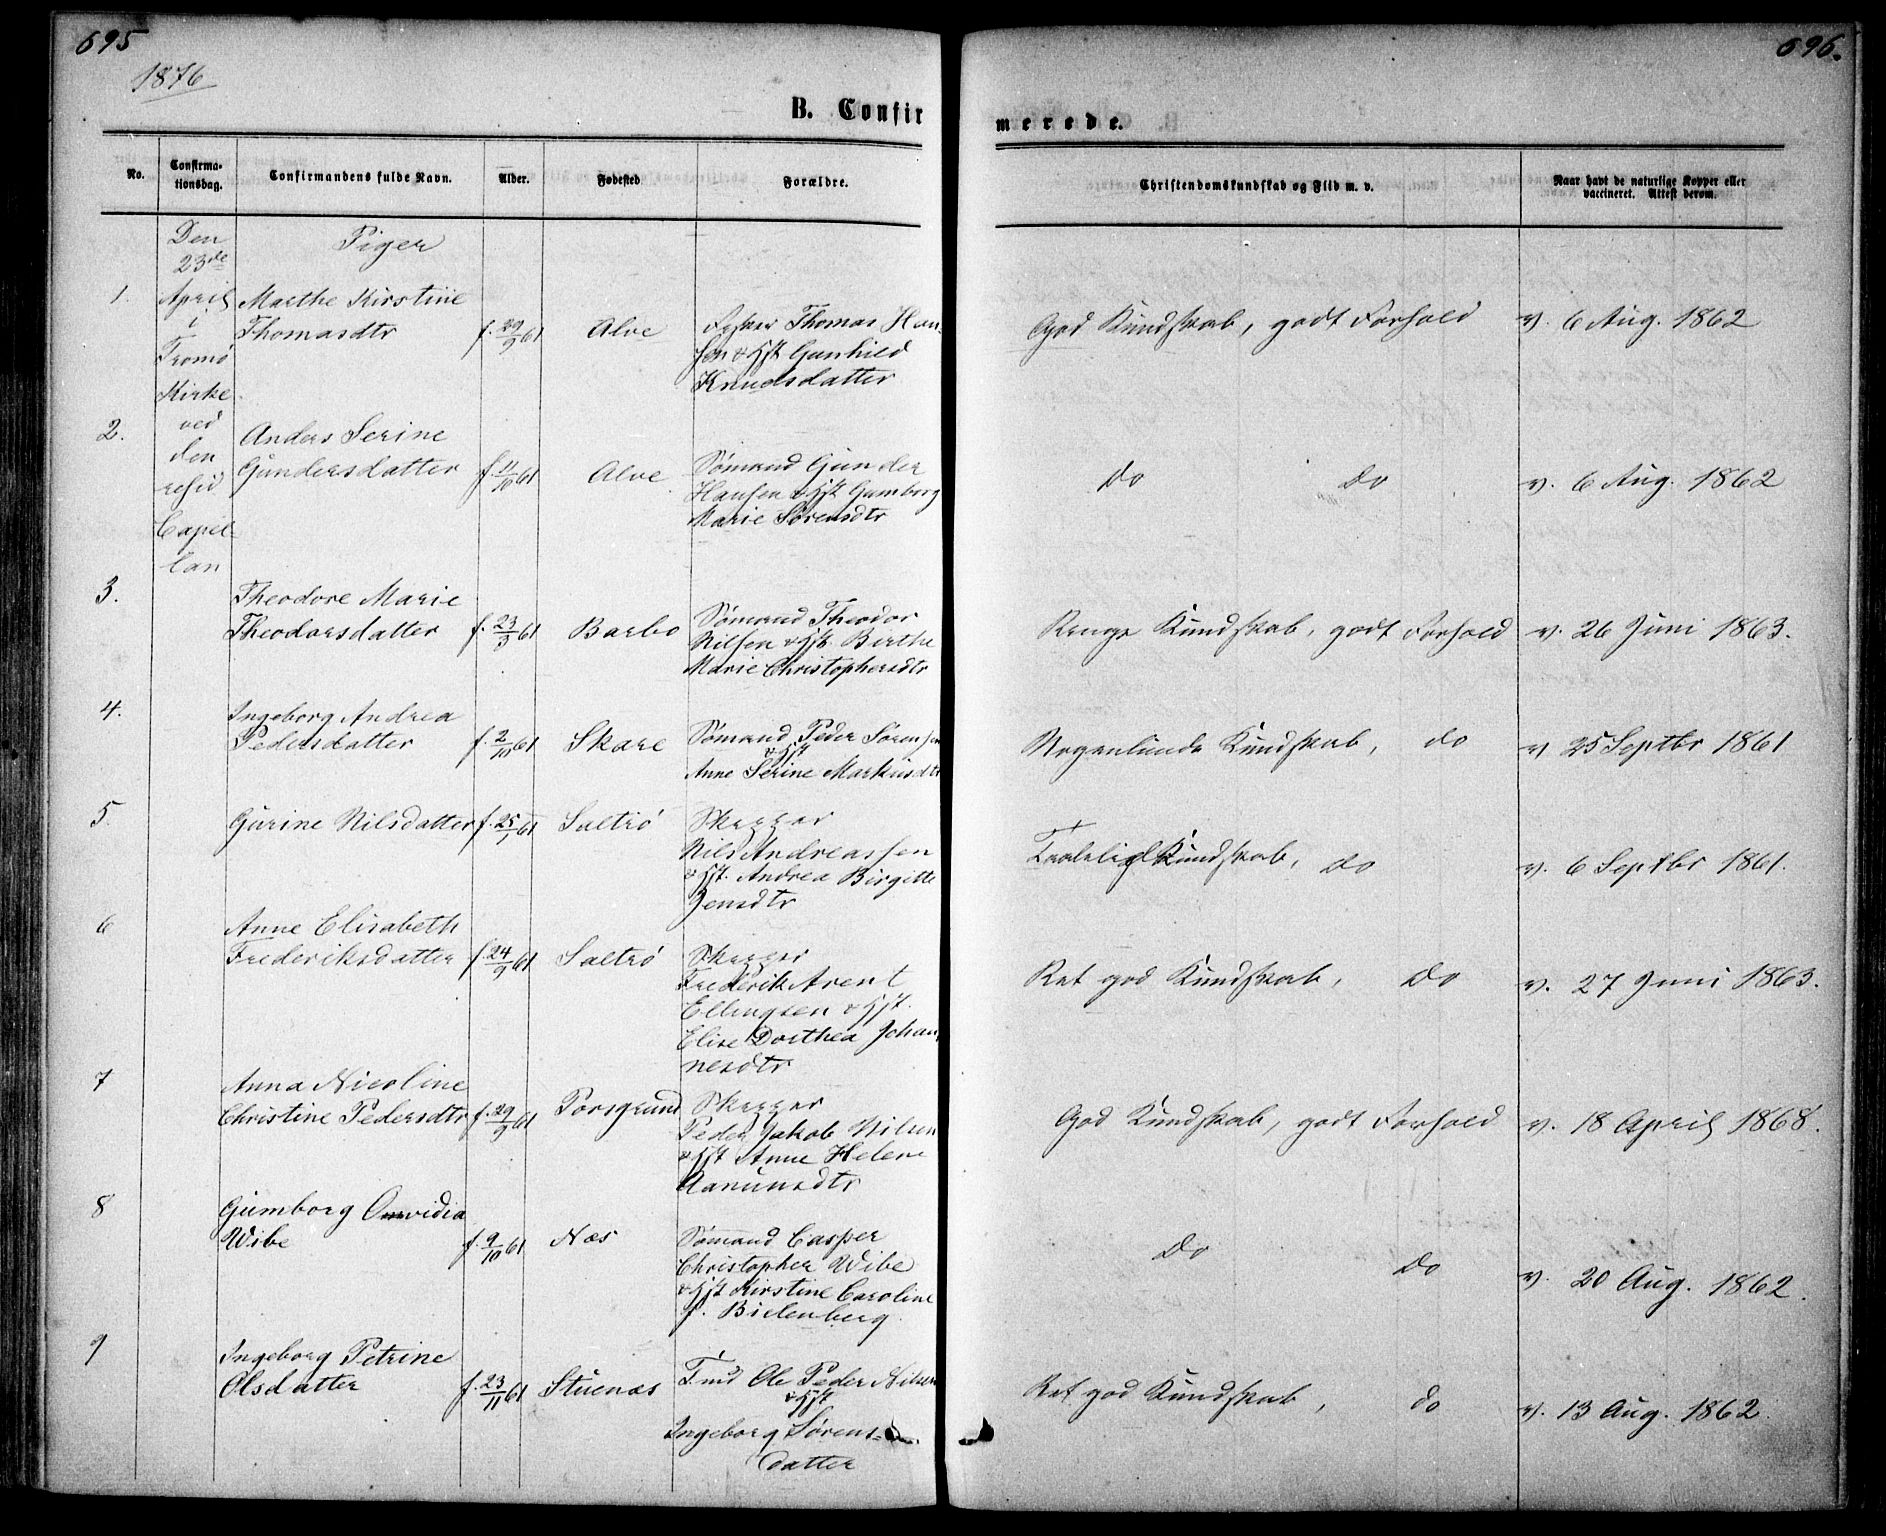 695
696.
1876
B. Confir
merede.
No.
Confirma-
tionsdag.
Confirmandens fulde Navn.
Alder.
Fødested
Forældre.
Christendomskundskab og Flid m. v.
Naar havt de naturlige Kopper eller
vaccineret. Attest derom.
Den
23de
April
i
Tromø
Kirke
ved
den
resid
Capel-
lan
Piger
1.
Marthe Kirstine
Thomasdtr
f. 29/9 61
Alve
Thomas Han-
sen & Hst Gunhild
Knudsdatter
God Kundskab, godt Forhold
v. 6 Aug. 1862
2.
Anders Serine
Gundersdatter
f. 11/10 61
Alve
Sømand Gunder
Hansen & Hst Gumborg
Marie Sørensdtr
do do
v. 6 Aug. 1862
3.
Theodore Marie
Theodorsdatter
f. 23/3 61
Barbo
Sømand Theodor
Nilsen & Hst. Berthe
Marie Christophersdtr
Kundskab, godt Forhold
v. 26 Juni 1863.
4.
Ingeborg Andrea
Pedersdatter
f. 2/10 61
Skare
Sømand Peder Sørensen
& Hst
Anne Serine Markusdtr
Nogenlunde Kundskab, do
v 25 Septbr 1861
5.
Gurine Nilsdatter
f. 25/1 61
Saltrø
Skipper
Nils Andreassen
& Hst. Andrea Birgitte
Jensdtr
Taalelig Kundskab, do
v. 6 Septbr 1861.
6
Anne Elisabeth
Frederiksdatter
f. 24/9 61
Saltrø
Skipper
Frederik Arent
Ellingsen & Hst.
Elise Dorthea Johan-
nesdtr
Ret god Kundskab, do
v. 27 Juni 1863.
7
Anna Nicoline
Christine Pedersdtr
f. 29/9 61
Porsgrund
Skipper
Peder Jakob Nilsen
& Hst Anne Helene
Aanunsdtr
God Kundskab, godt Forhold
v. 18 April 1868.
8
Gumborg Omvidia
Wibe
f. 9/10 61
Næs
Sømand Casper
Christopher Wibe
& Hst Kirstine Caroline
f. Bielenberg
do do
v. 20 Aug. 1862.
9
Ingeborg Petrine
Olsdatter
f. 23/11 61
Stuenæs
Tmd Ole Peder Nilsen
& Hst
Ingeborg Sørens-
datter
Ret god Kundskab, do
v. 13 Aug. 1862.